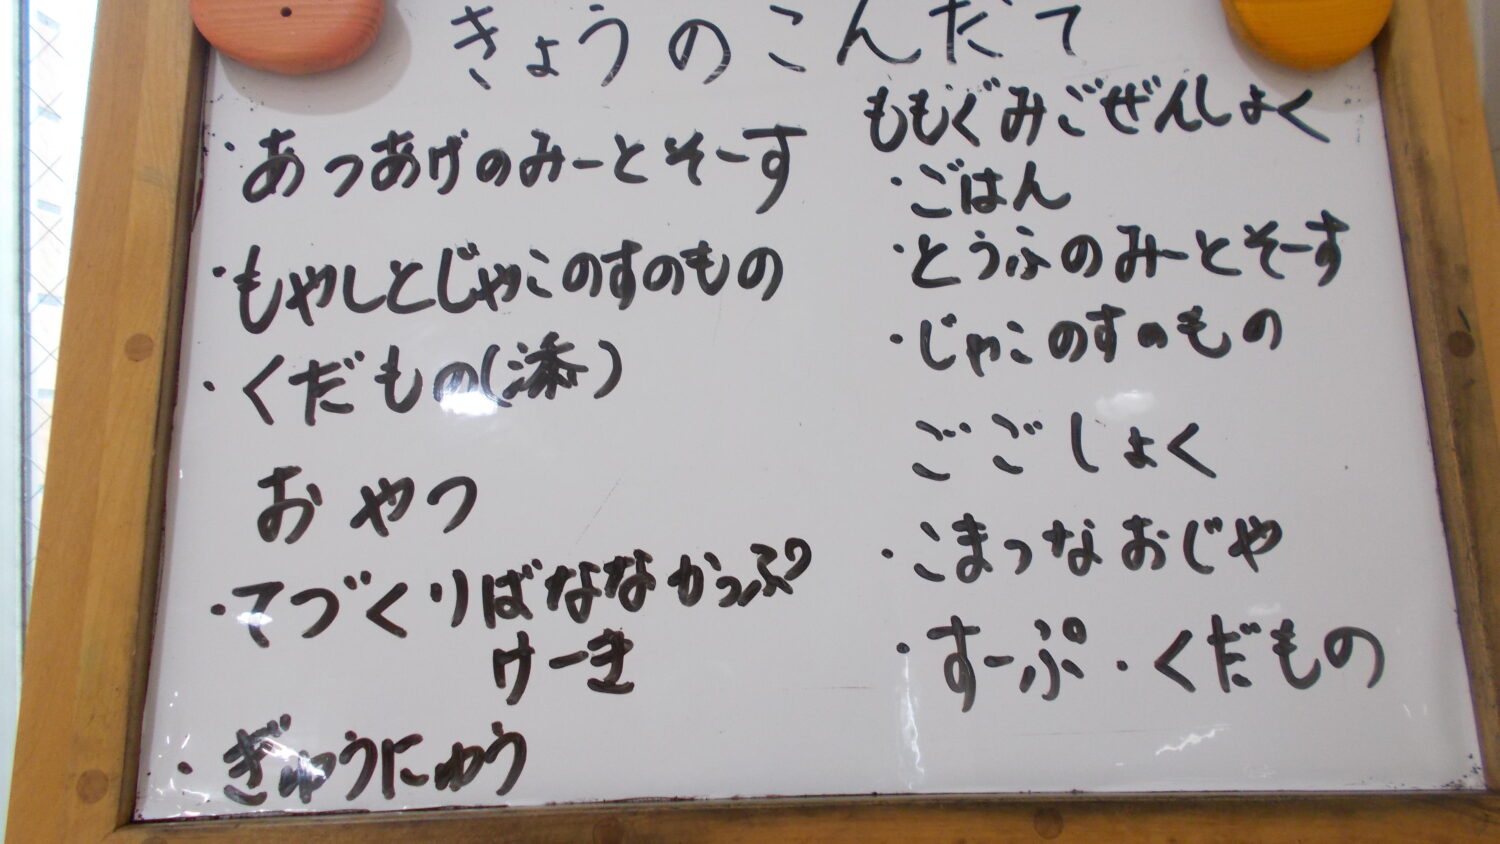 きょうのこんだて
・あつあげのみーとそーす
・もやしとじゃこのすのもの
・くだもの(添)
おやつ
・てづくりばななかっぷ
けーき
・ぎゅうにゅう
ももぐみごぜんしょく
・ごはん
・とうふのみーとそーす
・じゃこのすのもの
ごごしょく
・こまつなおじや
・すーぷ・くだもの